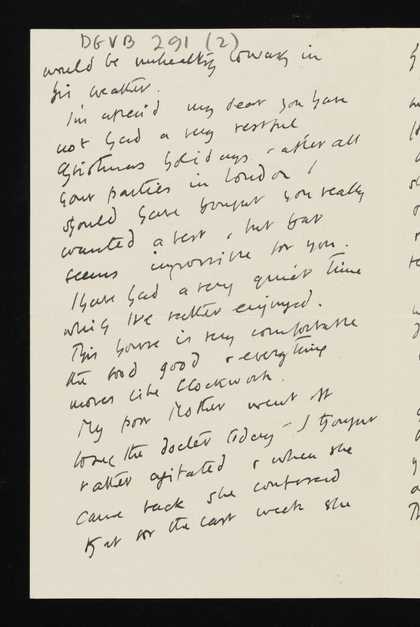 DGVB 291 (2)
would be unhealthy in
this weather.
I'm afraid my dear you have
not had a very restful
Christmas holidays - after all
your parties in London I
should have thought you really
wanted a rest, but that
seems impossible for you.
I have had a very quiet time
which I've rather enjoyed.
This house is very comfortable
the food good & everything
moves like Clockwork.
My poor Mother went off
to see the doctor today - I thought
rather agitated & when she
came back she confessed
that for the last week she